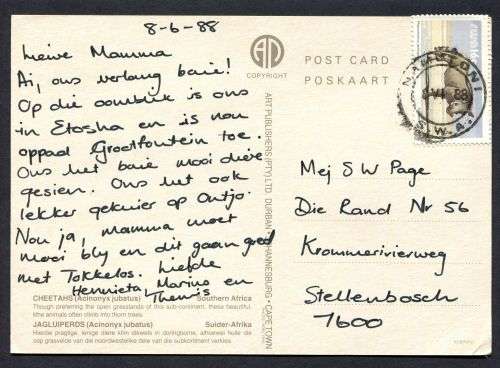 8-6-88
Liewe Mamma
Ai, ons verlang baie!
Op die oomblik is ons
in Etosha en is nou
oppad Grootfontein toe.
Ons het baie mooi diere
gesien. Ons het ook
lekker gekuier op Outjo.
Nou ja, mamma moet
mooi bly en dit gaan goed
met Tokkelos. Liefde
Henrieta, Marius en
Theunis
CHEETAHS (Acinonyx jubatus) Southern Africa
Though preferring the open grasslands of this sub-continent, these beautiful,
lithe animals often climb into thorn trees.
JAGLUIPERDS (Acinonyx jubatus) Suider-Afrika
COPYRIGHT
ART PUBLISHERS (PTY) LTD. DURBAN JOHANNESBURG CAPE TOWN
POST CARD
POSKAART
NAMUTONI
8 VI 88
S.W.A.
Mej S W Page
Die Rand Nr 56
Krommerivierweg
Stellenbosch
7600